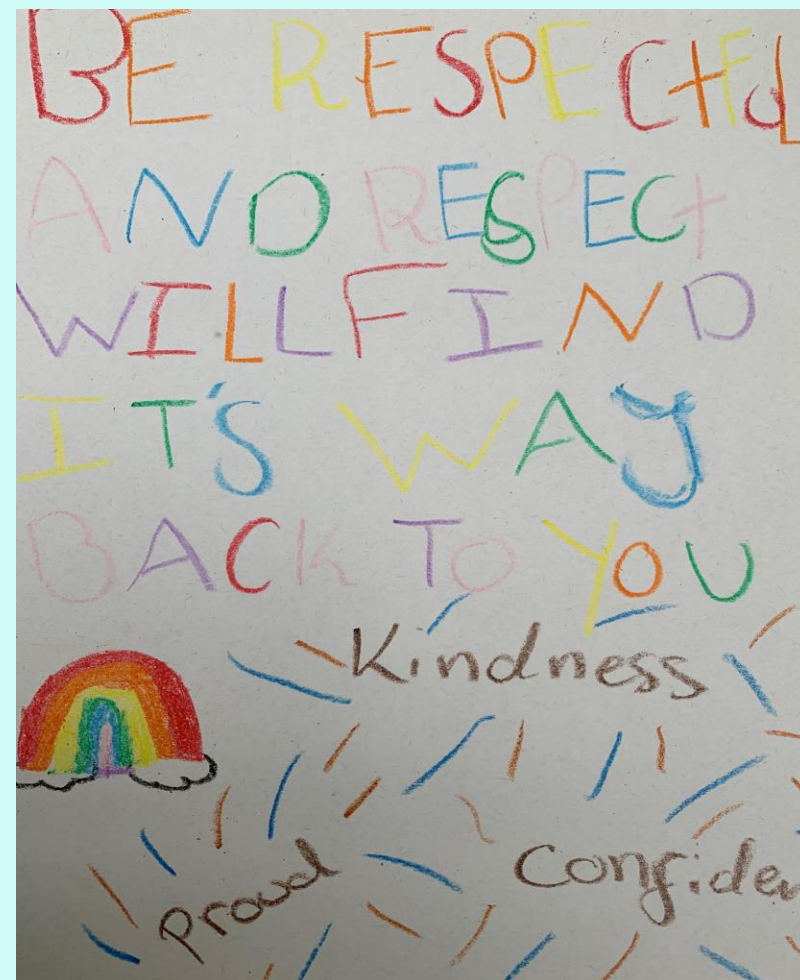 BE RESPECtFuL
AND RESPECt
WILL FIND
IT'S WAY
BACK TO YOU
Kindness
Proud
Confiden